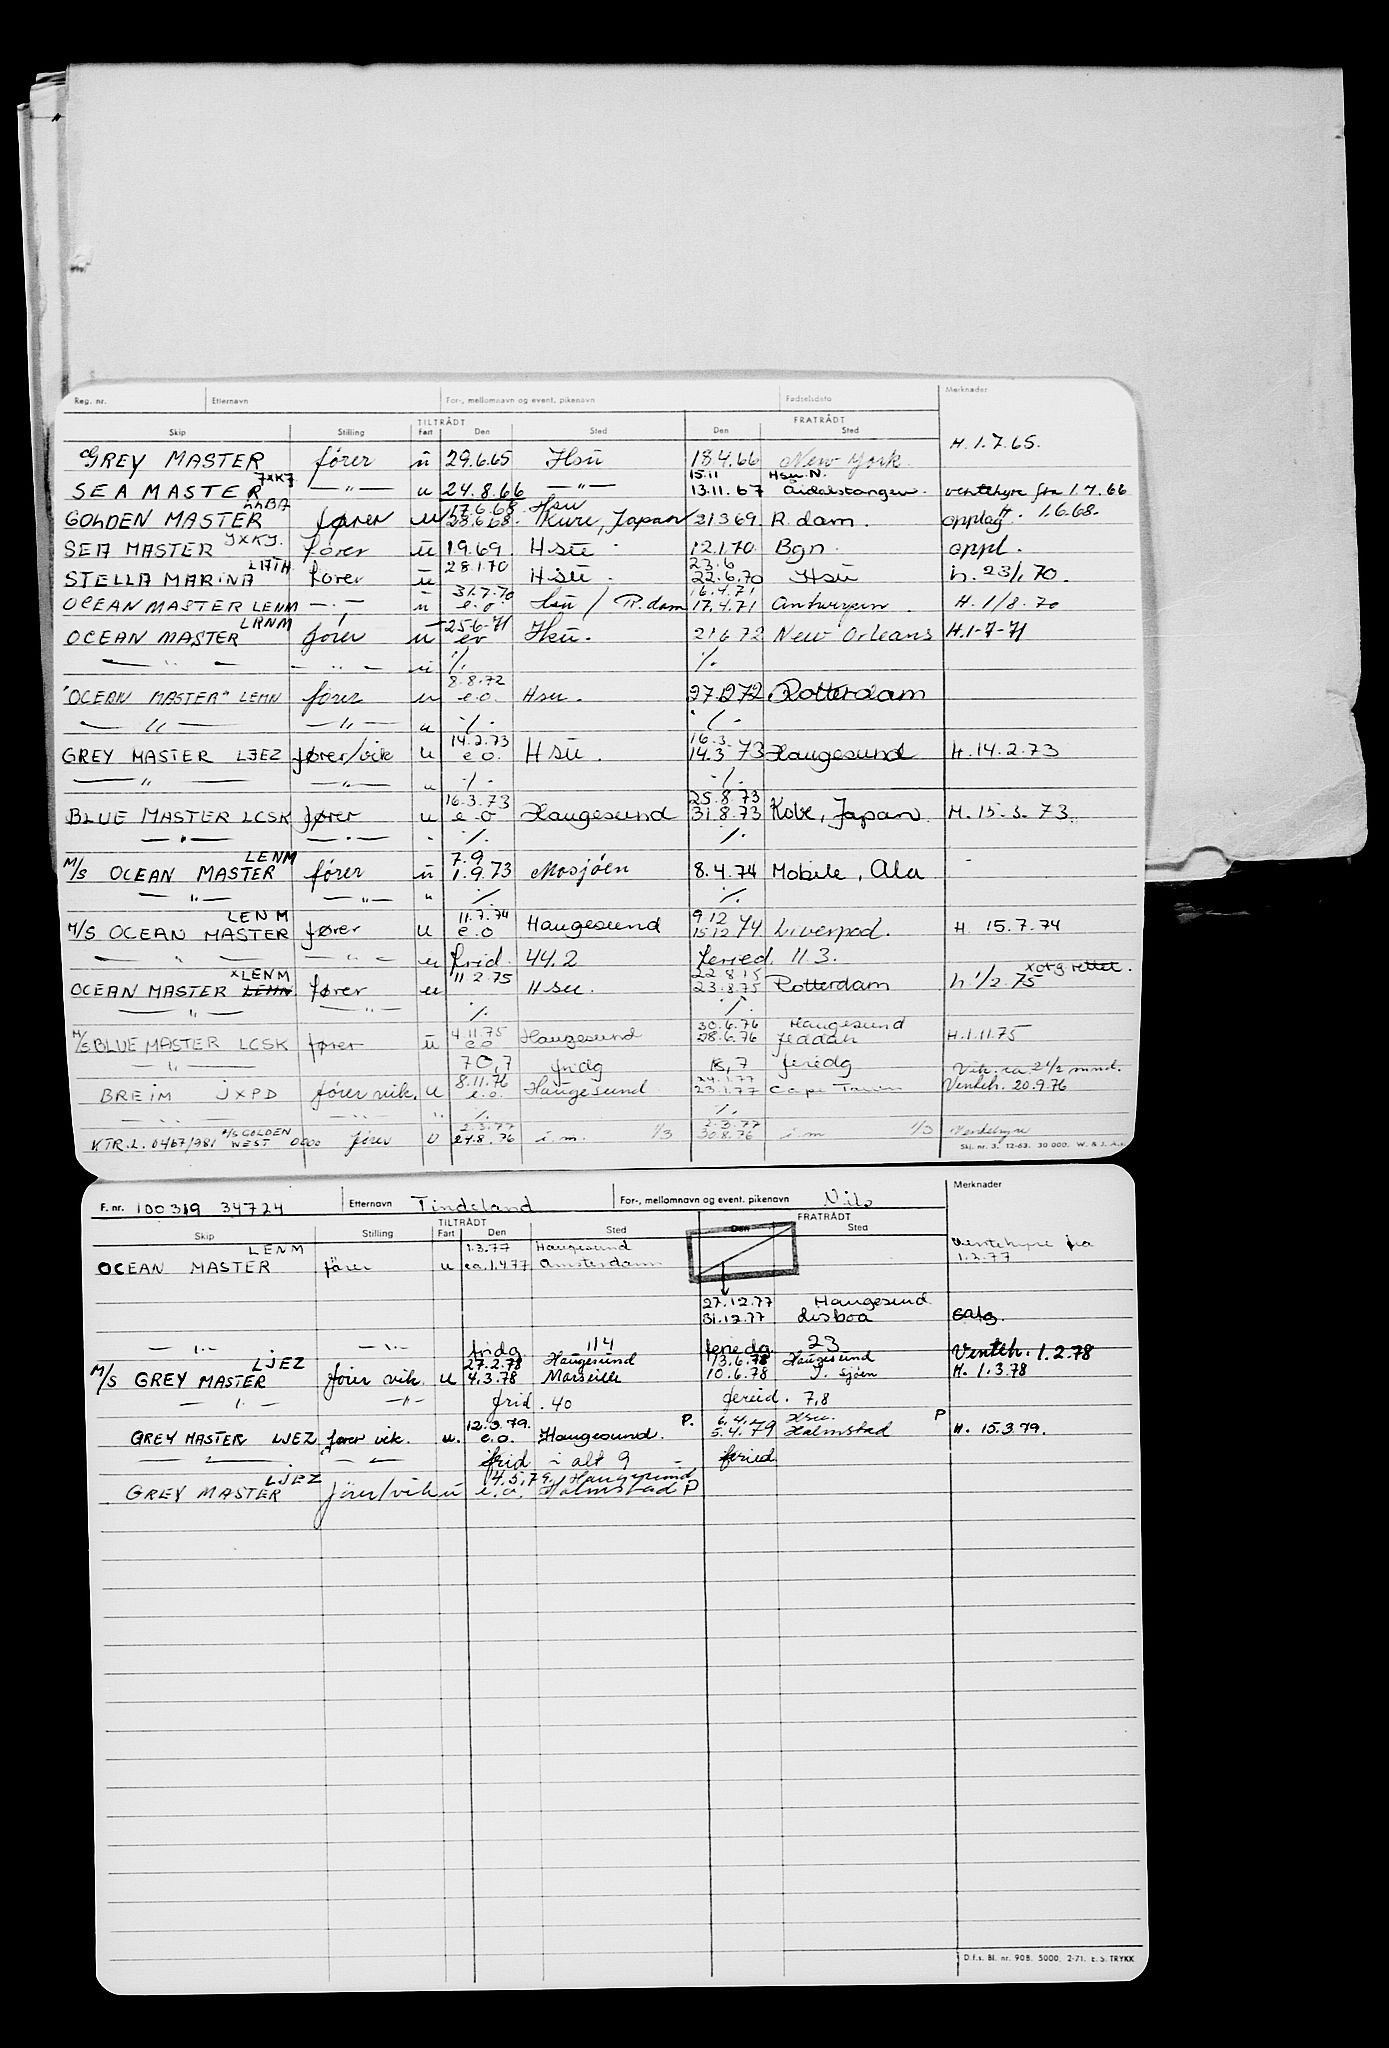 Reg. nr. Etternavn For-, mellomnavn og event. pikenavn Fødselsdato Merknader
TILTRÅDT FRATRÅDT
Skip Stilling Fart Den Sted Den Sted
H. 1.7.65.
GREY MASTER fører u 29.6.65 Hsu 18.4.66 New York
JXKJ 15.11 Hsu. N.
SEA MASTER —"— u 24.8.66 —"— 13.11.67 Årdalstangen. ventehyre fra 1.7.66
17.6.68 Hsu H. 1.6.68.
GOLDEN MASTER fører u 23.6.68. Kure, Japan 21369 R.dam. opplag
SEA MASTER JXKJ. fører u 1.9.69. Hsu 12.1.70 Bgn. oppl.
LATH 28.1.70 23.6
STELLA MARINA fører u Hsu. 22.6.70 Hsu h. 23/1 70.
31.7.70 16.4.71
OCEAN MASTER LENM —"— u e.o. Hsu / R.dam 17.4.71 Antwerpen. H. 1/8.70
25-6-71
OCEAN MASTER fører u eo Hsu. 21672 New Orleans H.1-7-71
— " — — " — u ./. ./.
8.8.72
"OCEAN MASTER" LEMN fører u e.o. Hsu. 27.1272 Rotterdam
— " — — " — u ./. ./.
14.2.73 16.3.
GREY MASTER LJEZ fører/vik u e o. Hsu. 14.3 73 Haugesund H. 14.2.73
— " — — " — u ./. ./.
16.3.73 25.8.73
BLUE MASTER LCSK fører u e o Haugesund 31.8.73 Kobe, Japan. H. 15.3.73.
— " — — " — " ./. ./.
LENM 7.9
M/S OCEAN MASTER fører u 1.9.73 Mosjøen 8.4.74 Mobile, Ala
— " — — " — " ./. ./.
LENM 11.7.74 9.12
M/S OCEAN MASTER fører u e.o Haugesund 15.12 74 Liverpool. H. 15.7.74
— " — — " — u frid. 44.2 feried. 11 3.
xLENM 11 2.75 22 8 75 x otg rettet.
OCEAN MASTER LEMN fører u Hsu. 23.8.75 Rotterdam h. 1/2.75
— " — — " — ./. ./.
4.11.75 30.6.76 Haugesund
M/S BLUE MASTER LCSK fører u e o Haugesund 28.6.76 Jeddah H.1.11.75
— " — 70,7 fridg 18,7 feriedg Vik. ca 2 1/2 mnd.
8.11.76 24.1.77 Venteh. 20.9.76
BREIM JXPD fører vik. u e.o. Haugesund 23.1.77 Cape Town
— " — — " — " ./. ./.
2.3.77 2.3.77
V.TR.L. 0467/981 M/S GOLDEN WEST 0000 fører U 24.8.76 i.m. 1/3 30.8.76 i.m 1/3 Ventehyre
Skj. nr. 3. 12-63. 30 000. W. & J. A.s
F. nr. 100319 34724 Etternavn Tindeland For-, mellomnavn og event. pikenavn Nils Merknader
TILTRÅDT FRATRÅDT
Skip Stilling Fart Den Sted Den Sted
LENM 1.3.77 Haugesund Ventehyre fra
OCEAN MASTER fører u ca.1.4.77 Amsterdam 1.3.77
27.12.77 Haugesund
31.12.77 Lisboa
— " — — " — fridg 114 feriedg. 23
LJEZ 27.2.78 Haugesund 13.6.78 Haugesund Venteh. 1.2.78
M/S GREY MASTER fører vik. u 4.3.78 Marseille 10.6.78 H. 1.3.78
— " — — " — frid. 40 fereid. 7,8
12.3.79. P. 6.4. Hsu. P
GREY MASTER LJEZ fører vik. u. e.o. Haugesund. 5.4.79 Halmstad H. 15.3.79.
— " — — " — frid i alt 9 feried
LJEZ 14.5.79. Haugesund
GREY MASTER fører/vik u e.o. Halmstad P
D.f.s. Bl. nr. 90B. 5000. 2-71. E.S. TRYKK